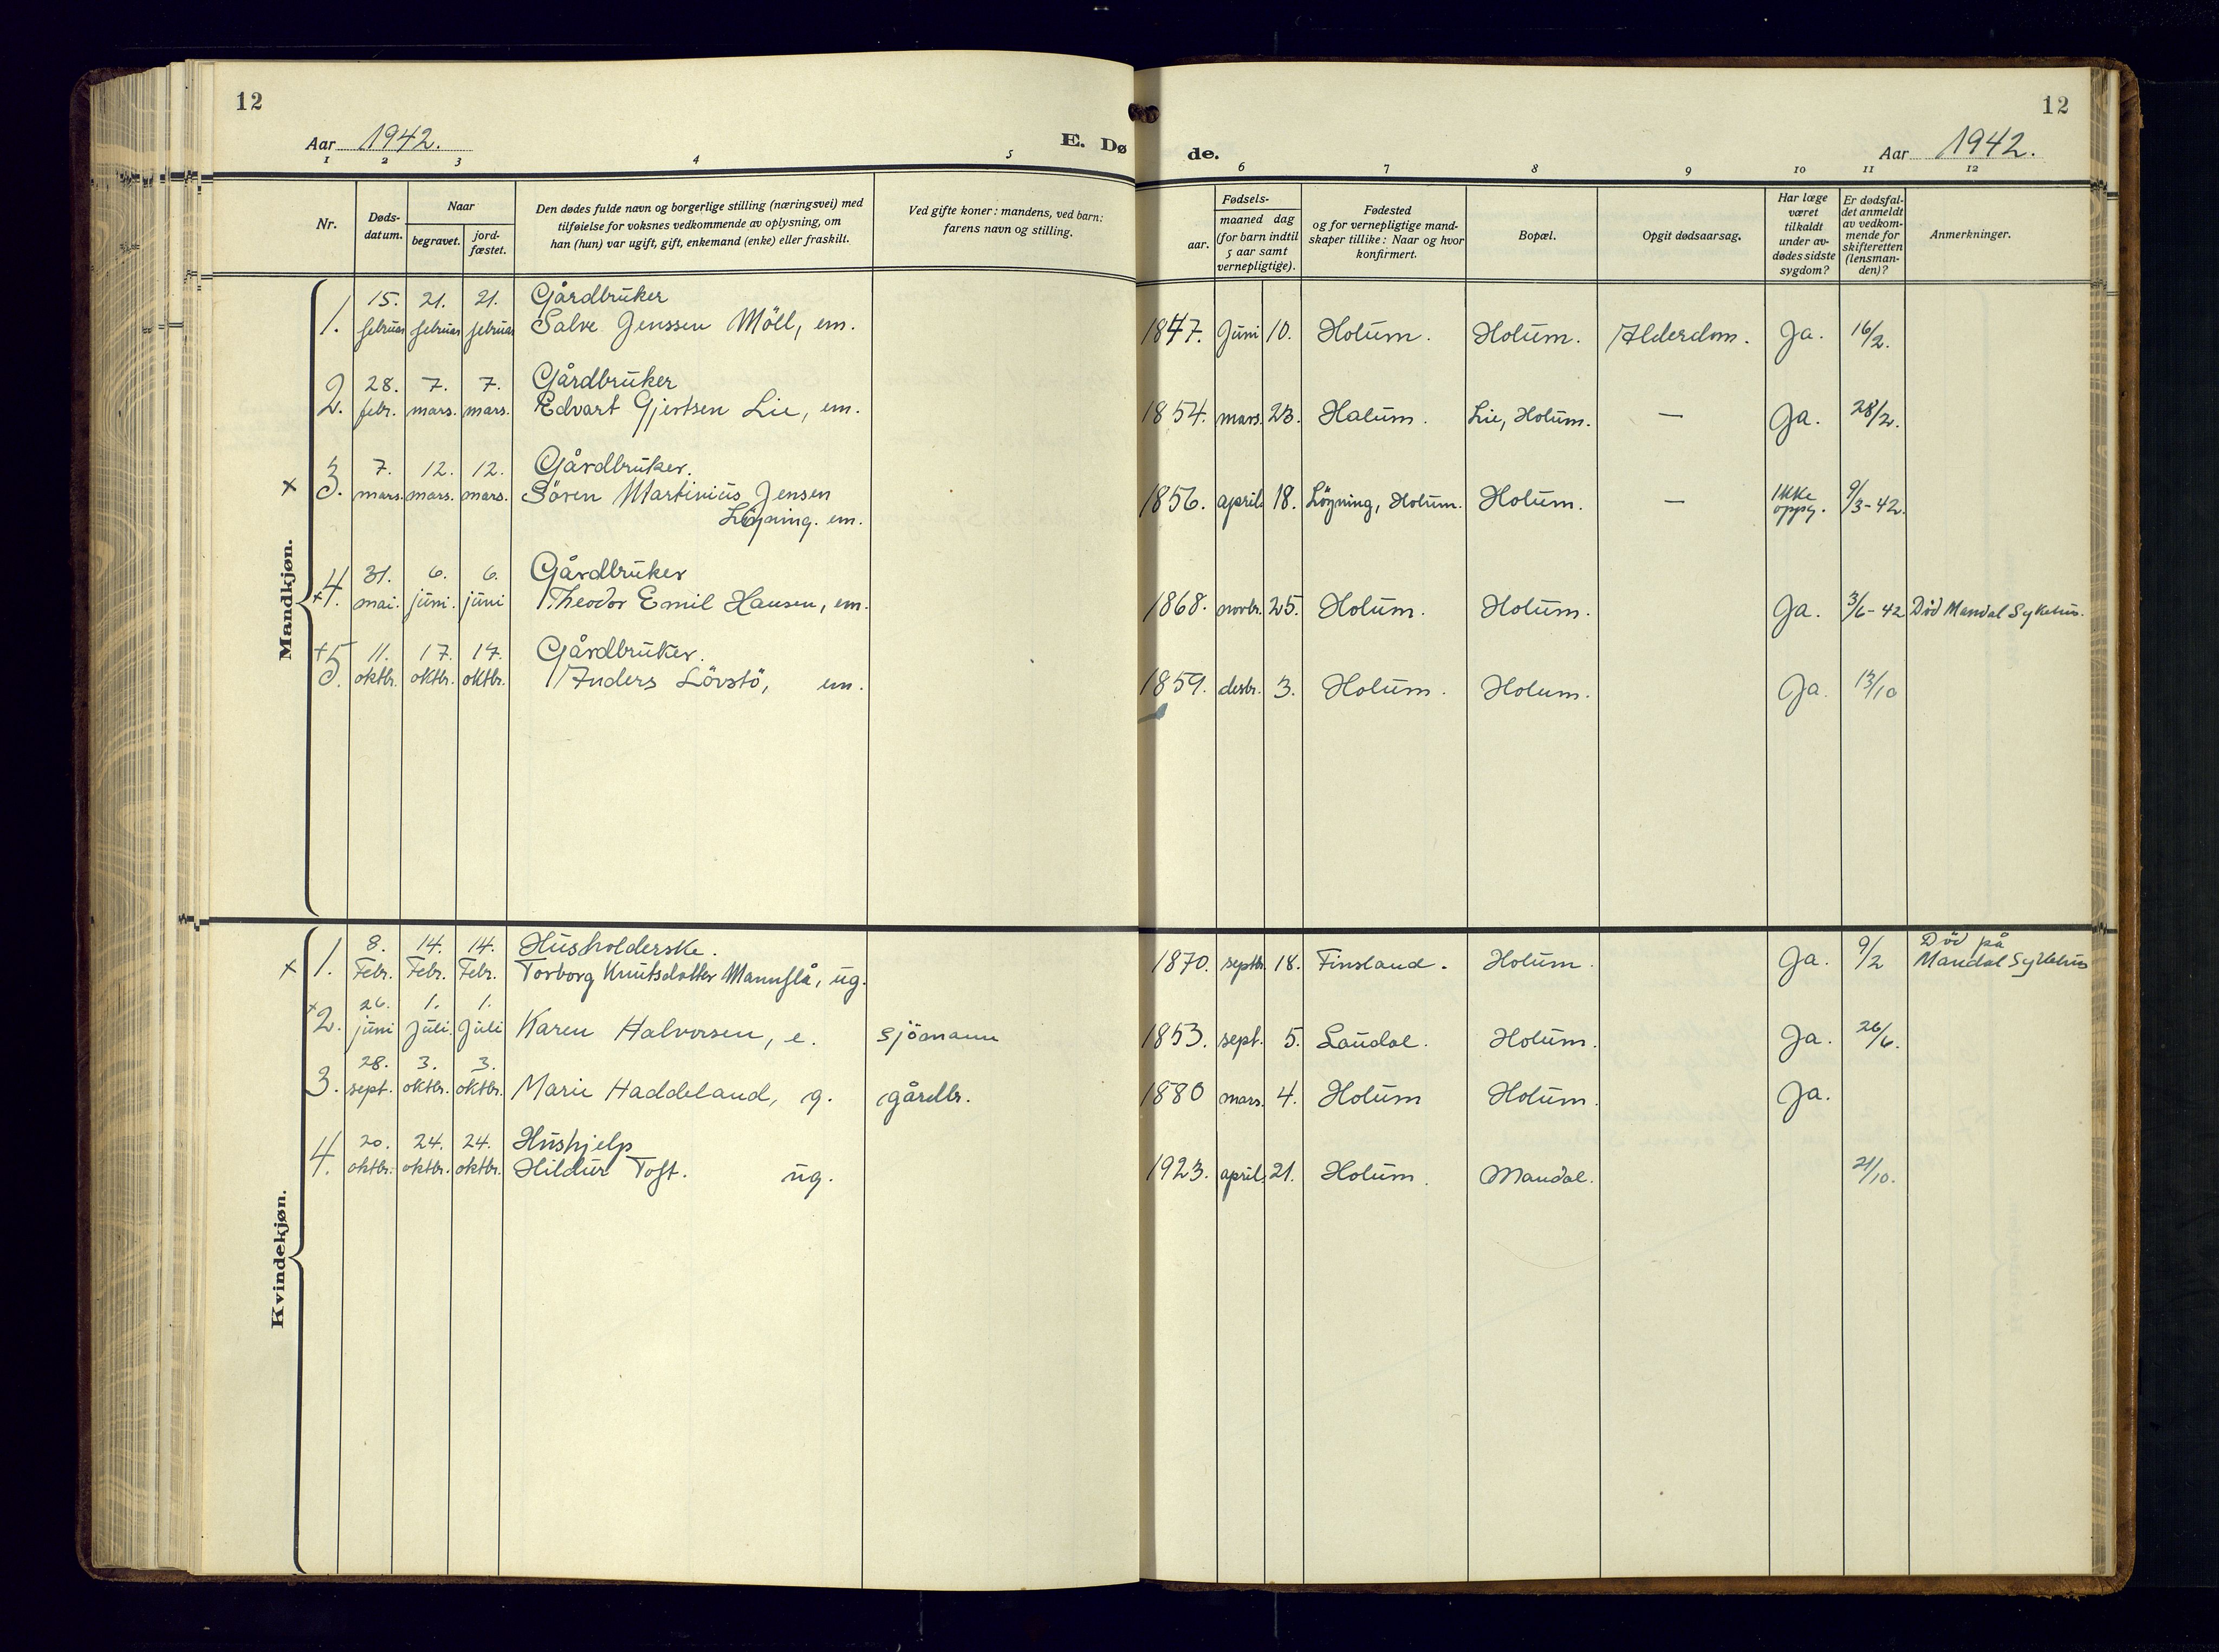 12
Aar 1942.
E. Dø
1 2 3 4 5
Nr.
Døds-
datum.
Naar
begravet.
jord-
fæstet.
Den dødes fulde navn og borgerlige stilling (næringsvei) med
tilføielse for voksnes vedkommende av oplysning, om
han (hun) var ugift, gift, enkemand (enke) eller fraskilt.
Ved gifte koner: mandens, ved barn:
farens navn og stilling.
Mandkjøn.
15. 21. 21. Gårdbruker
1. februar februar februar Salve Jenssen Möll, em.
28. 7. 7. Gårdbruker
2. febr. mars. mars. Edvart Gjertsen Lie, em.
7. 12. 12. Gårdbruker.
x 3. mars. mars. mars. Sören Martinius Jensen
Lögning. em.
31. 6. 6. Gårdbruker
x 4. mai. juni. juni Theodor Emil Hansen, em.
+ 5. 11. 17. 17. Gårdbruker.
oktbr. oktbr. oktbr. Anders Lövstö, em.
Kvindekjøn.
8. 14. 14. Husholderske.
x 1. Febr. Febr. Febr. Torborg Knutsdatter Mannflå, ug.
26. 1. 1.
x 2. juni Juli Juli Karen Halvorsen, e. sjömann
28. 3. 3.
3. sept. oktbr. oktbr. Marie Haddeland, g. gårdbr.
20. 24. 24. Hushjelp
4. oktbr. oktbr. oktbr. Hildur Toft. ug.
12
de.
Aar 1942.
6 7 8 9 10 11 12
Fødsels-
aar.
maaned dag
(for barn indtil
5 aar samt
vernepligtige).
Fødested
og for vernepligtige mand-
skaper tillike: Naar og hvor
konfirmert.
Bopæl.
Opgit dødsaarsag.
Har læge
været
tilkaldt
under av-
dødes sidste
sygdom?
Er dødsfal-
det anmeldt
av vedkom-
mende for
skifteretten
(lensman-
den)?
Anmerkninger.
1847. Juni 10. Holum. Holum. Alderdom. Ja. 16/2.
1854. mars. 23. Halum. Lie, Holum. — Ja. 28/2.
1856. april 18. Lögning, Holum. Holum. — Ikke
oppg. 9/3-42.
1868. novbr. 25. Holum. Holum. Ja. 3/6-42 Död Mandal Sykehus.
1859. desbr. 3. Holum. Holum. Ja. 13/10
Död på
1870. septbr. 18. Finsland. Holum. Ja. 9/2 Mandal Sykehus
1853. sept. 5. Laudal. Holum. Ja. 26/6.
1880 mars. 4. Holum Holum. Ja.
1923. april 21. Holum. Mandal. 21/10.